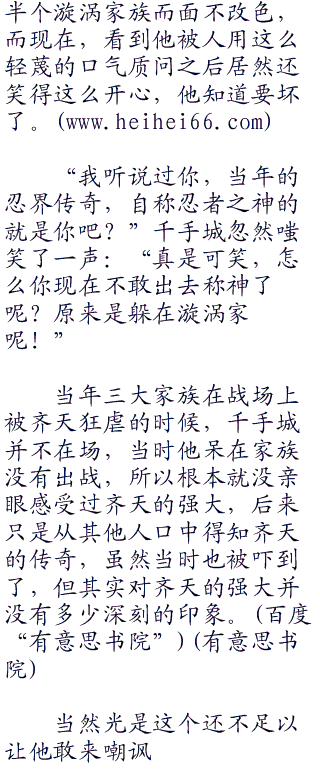 半个漩涡家族而面不改色，
而现在，看到他被人用这么
轻蔑的口气质问之后居然还
笑得这么开心，他知道要坏
了。(www.heihei66.com)
“我听说过你，当年的
忍界传奇，自称忍者之神的
就是你吧？”千手城忽然嗤
笑了一声：“真是可笑，怎
么你现在不敢出去称神了
呢？原来是躲在漩涡家
呢！”
当年三大家族在战场上
被齐天狂虐的时候，千手城
并不在场，当时他呆在家族
没有出战，所以根本就没亲
眼感受过齐天的强大，后来
只是从其他人口中得知齐天
的传奇，虽然当时也被吓到
了，但其实对齐天的强大并
没有多少深刻的印象。(百度
“有意思书院”)(有意思书
院)
当然光是这个还不足以
让他敢来嘲讽